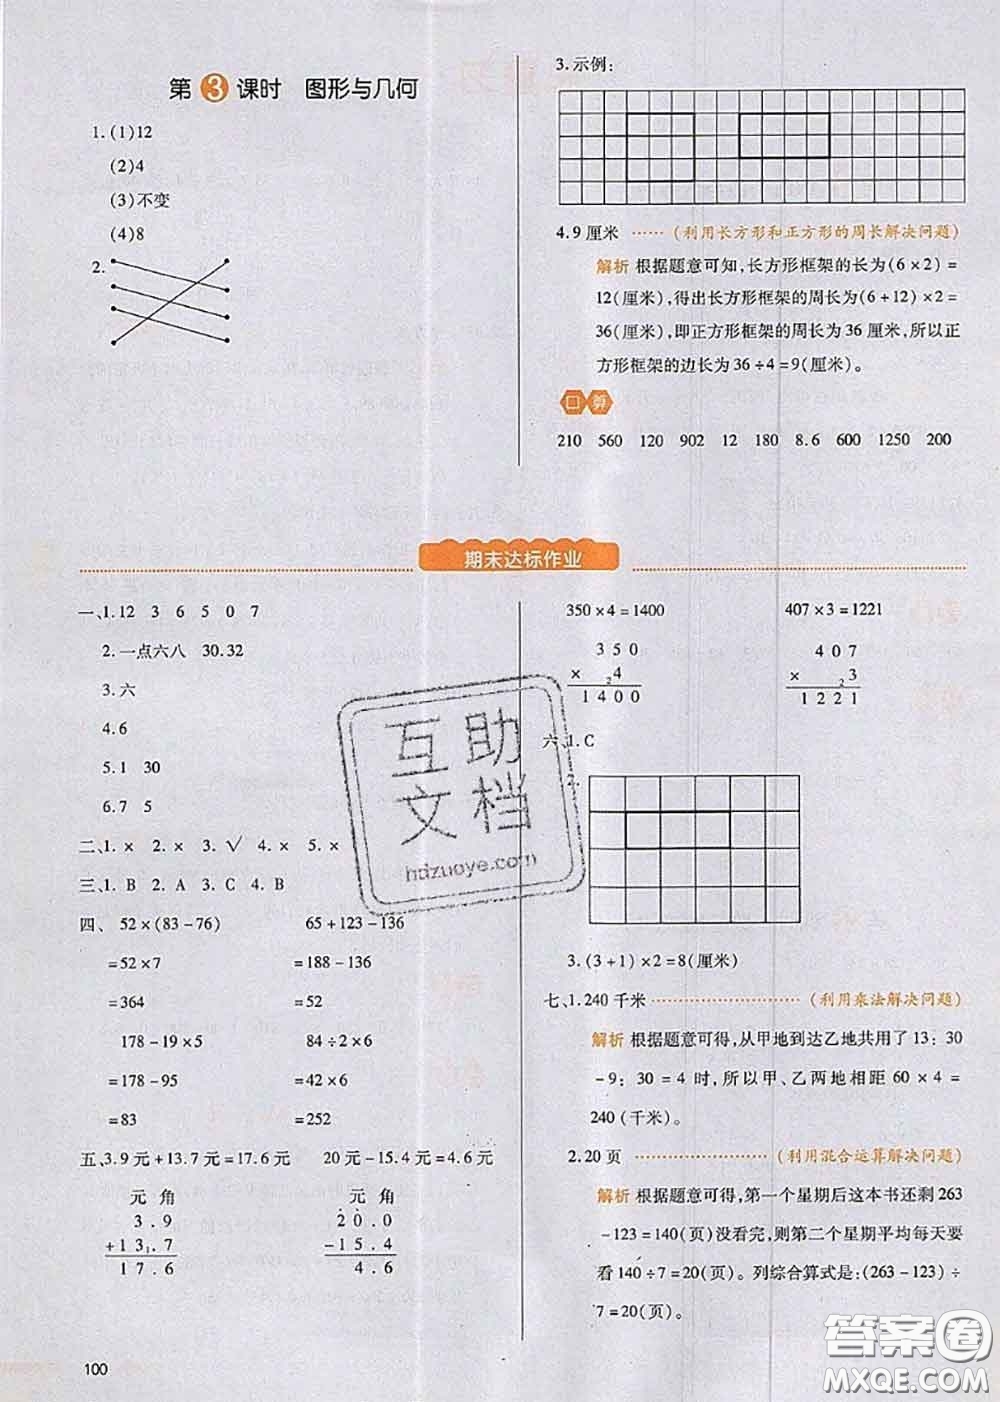 第3课时 图形与几何
1. (1)12
(2)4
(3)不变
(4)8
2.
3. 示例:
4. 9 厘米 ······ (利用长方形和正方形的周长解决问题)
解析 根据题意可知,长方形框架的长为(6×2)=
12(厘米),得出长方形框架的周长为(6+12)×2=
36(厘米),即正方形框架的周长为 36 厘米,所以正
方形框架的边长为 36÷4=9(厘米)。
口算
210 560 120 902 12 180 8.6 600 1250 200
期末达标作业
一、1. 12 3 6 5 0 7
2. 一点六八 30.32
3. 六
4. 6
5. 1 30
6. 7 5
二、1. × 2. × 3. √ 4. × 5. ×
三、1. B 2. A 3. C 4. B
四、 52×(83-76) 65+123-136
=52×7 =188-136
=364 =52
178-19×5 84÷2×6
=178-95 =42×6
=83 =252
五、3.9元+13.7元=17.6元 20元-15.4元=4.6元
元 角 元 角
3.9 20.0
+13.7 -15.4
17.6 4.6
350×4=1400 407×3=1221
350 407
× 24 × 23
1400 1221
六、1. C
2.
3. (3+1)×2=8(厘米)
七、1. 240 千米 ······ (利用乘法解决问题)
解析 根据题意可得,从甲地到达乙地共用了 13:30
-9:30=4 时,所以甲、乙两地相距 60×4=
240(千米)。
2. 20 页 ······ (利用混合运算解决问题)
解析 根据题意可得,第一个星期后这本书还剩 263
-123=140(页)没看完,则第二个星期平均每天要
看 140÷7=20(页)。列综合算式是:(263-123)÷
7=20(页)。
100
互助
文档
hdzuoye.com
答案圈
MXQE.COM